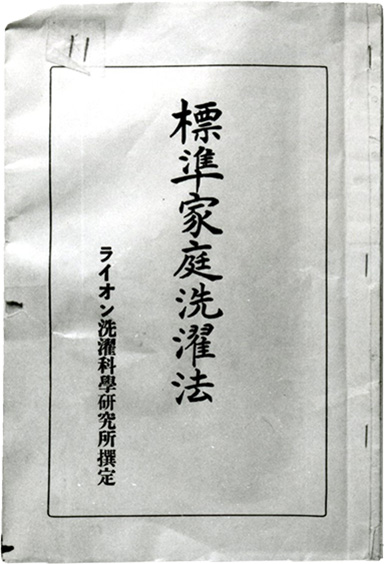 11
標準家庭洗濯法
ライオン洗濯科學硏究所撰定